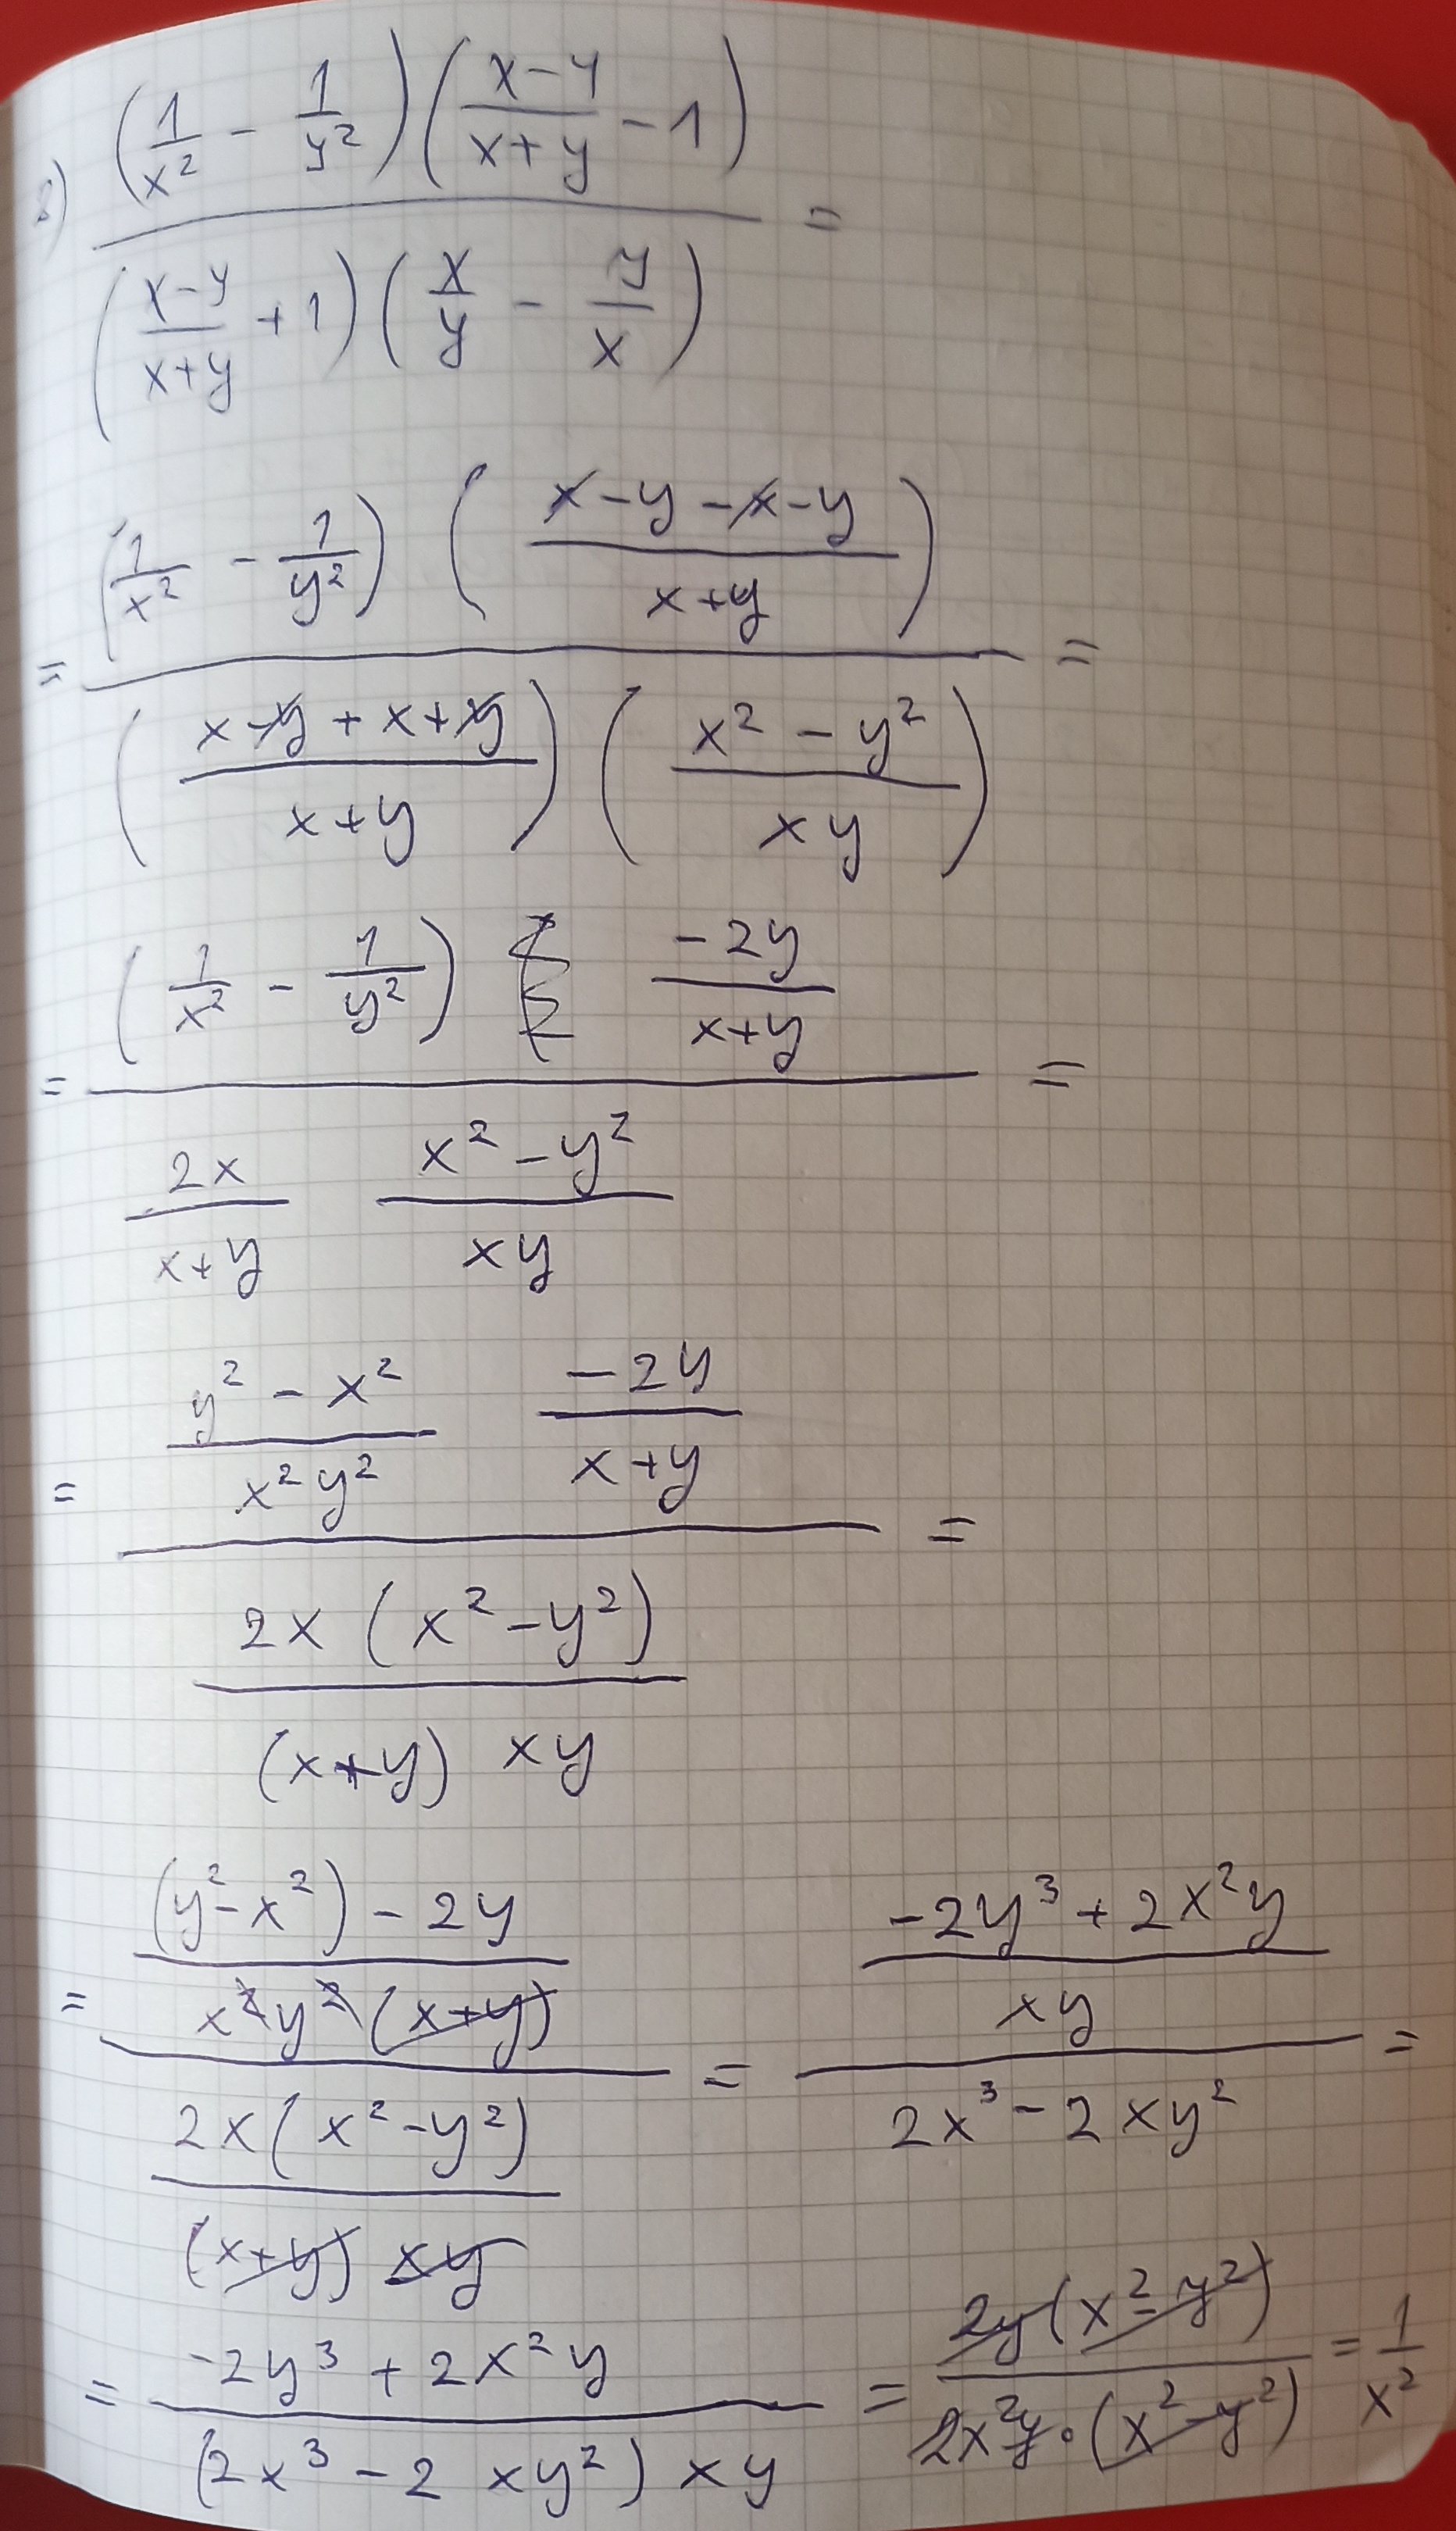 2) \frac{\left(\frac{1}{x^2} - \frac{1}{y^2}\right)\left(\frac{x-y}{x+y} - 1\right)}{\left(\frac{x-y}{x+y} + 1\right)\left(\frac{x}{y} - \frac{y}{x}\right)} =
= \frac{\left(\frac{1}{x^2} - \frac{1}{y^2}\right)\left(\frac{x-y-x-y}{x+y}\right)}{\left(\frac{x-y+x+y}{x+y}\right)\left(\frac{x^2-y^2}{xy}\right)} =
= \frac{\left(\frac{1}{x^2} - \frac{1}{y^2}\right) \frac{-2y}{x+y}}{\frac{2x}{x+y} \frac{x^2-y^2}{xy}} =
= \frac{\frac{y^2-x^2}{x^2y^2} \frac{-2y}{x+y}}{\frac{2x(x^2-y^2)}{(x+y)xy}} =
= \frac{\frac{(y^2-x^2)-2y}{x^2y^2(x+y)}}{\frac{2x(x^2-y^2)}{(x+y)xy}} = \frac{\frac{-2y^3+2x^2y}{xy}}{2x^3-2xy^2} =
= \frac{-2y^3+2x^2y}{(2x^3-2xy^2)xy} = \frac{2y(x^2-y^2)}{2x^2y \cdot (x^2-y^2)} = \frac{1}{x^2}